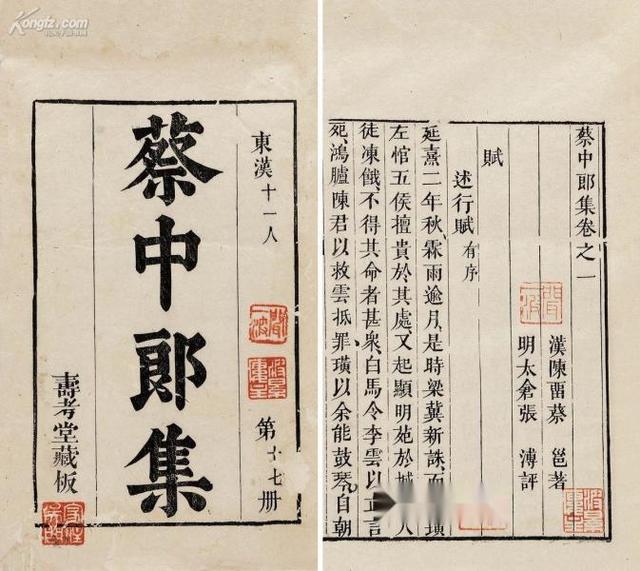 Kongfz.com
東漢十一人
蔡中郎集
第十七册
壽考堂藏板
蔡中郎集卷之一
漢陳畱蔡邕著
明太倉張溥評
賦
述行賦有序
延熹二年秋霖雨逾月是時梁冀新誅而
璜
左悺五侯擅貴於其處又起顯明苑於城
人
徒凍餓不得其命者甚衆白馬令李雲以直言
死鴻臚陳君以救雲抵罪璜以余能鼓琴自朝